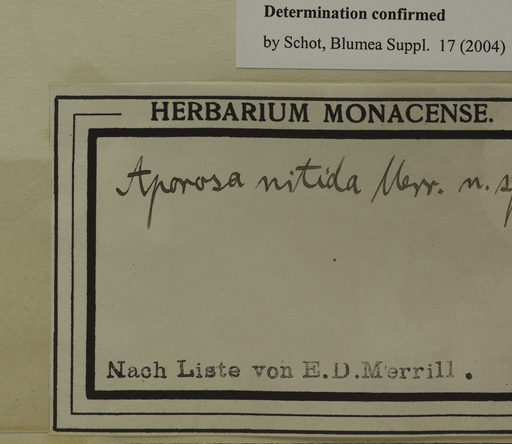 Determination confirmed
by Schot, Blumea Suppl. 17 (2004)
HERBARIUM MONACENSE.
Aporosa nitida Merr. n. sp
Nach Liste von E.D.Merrill.